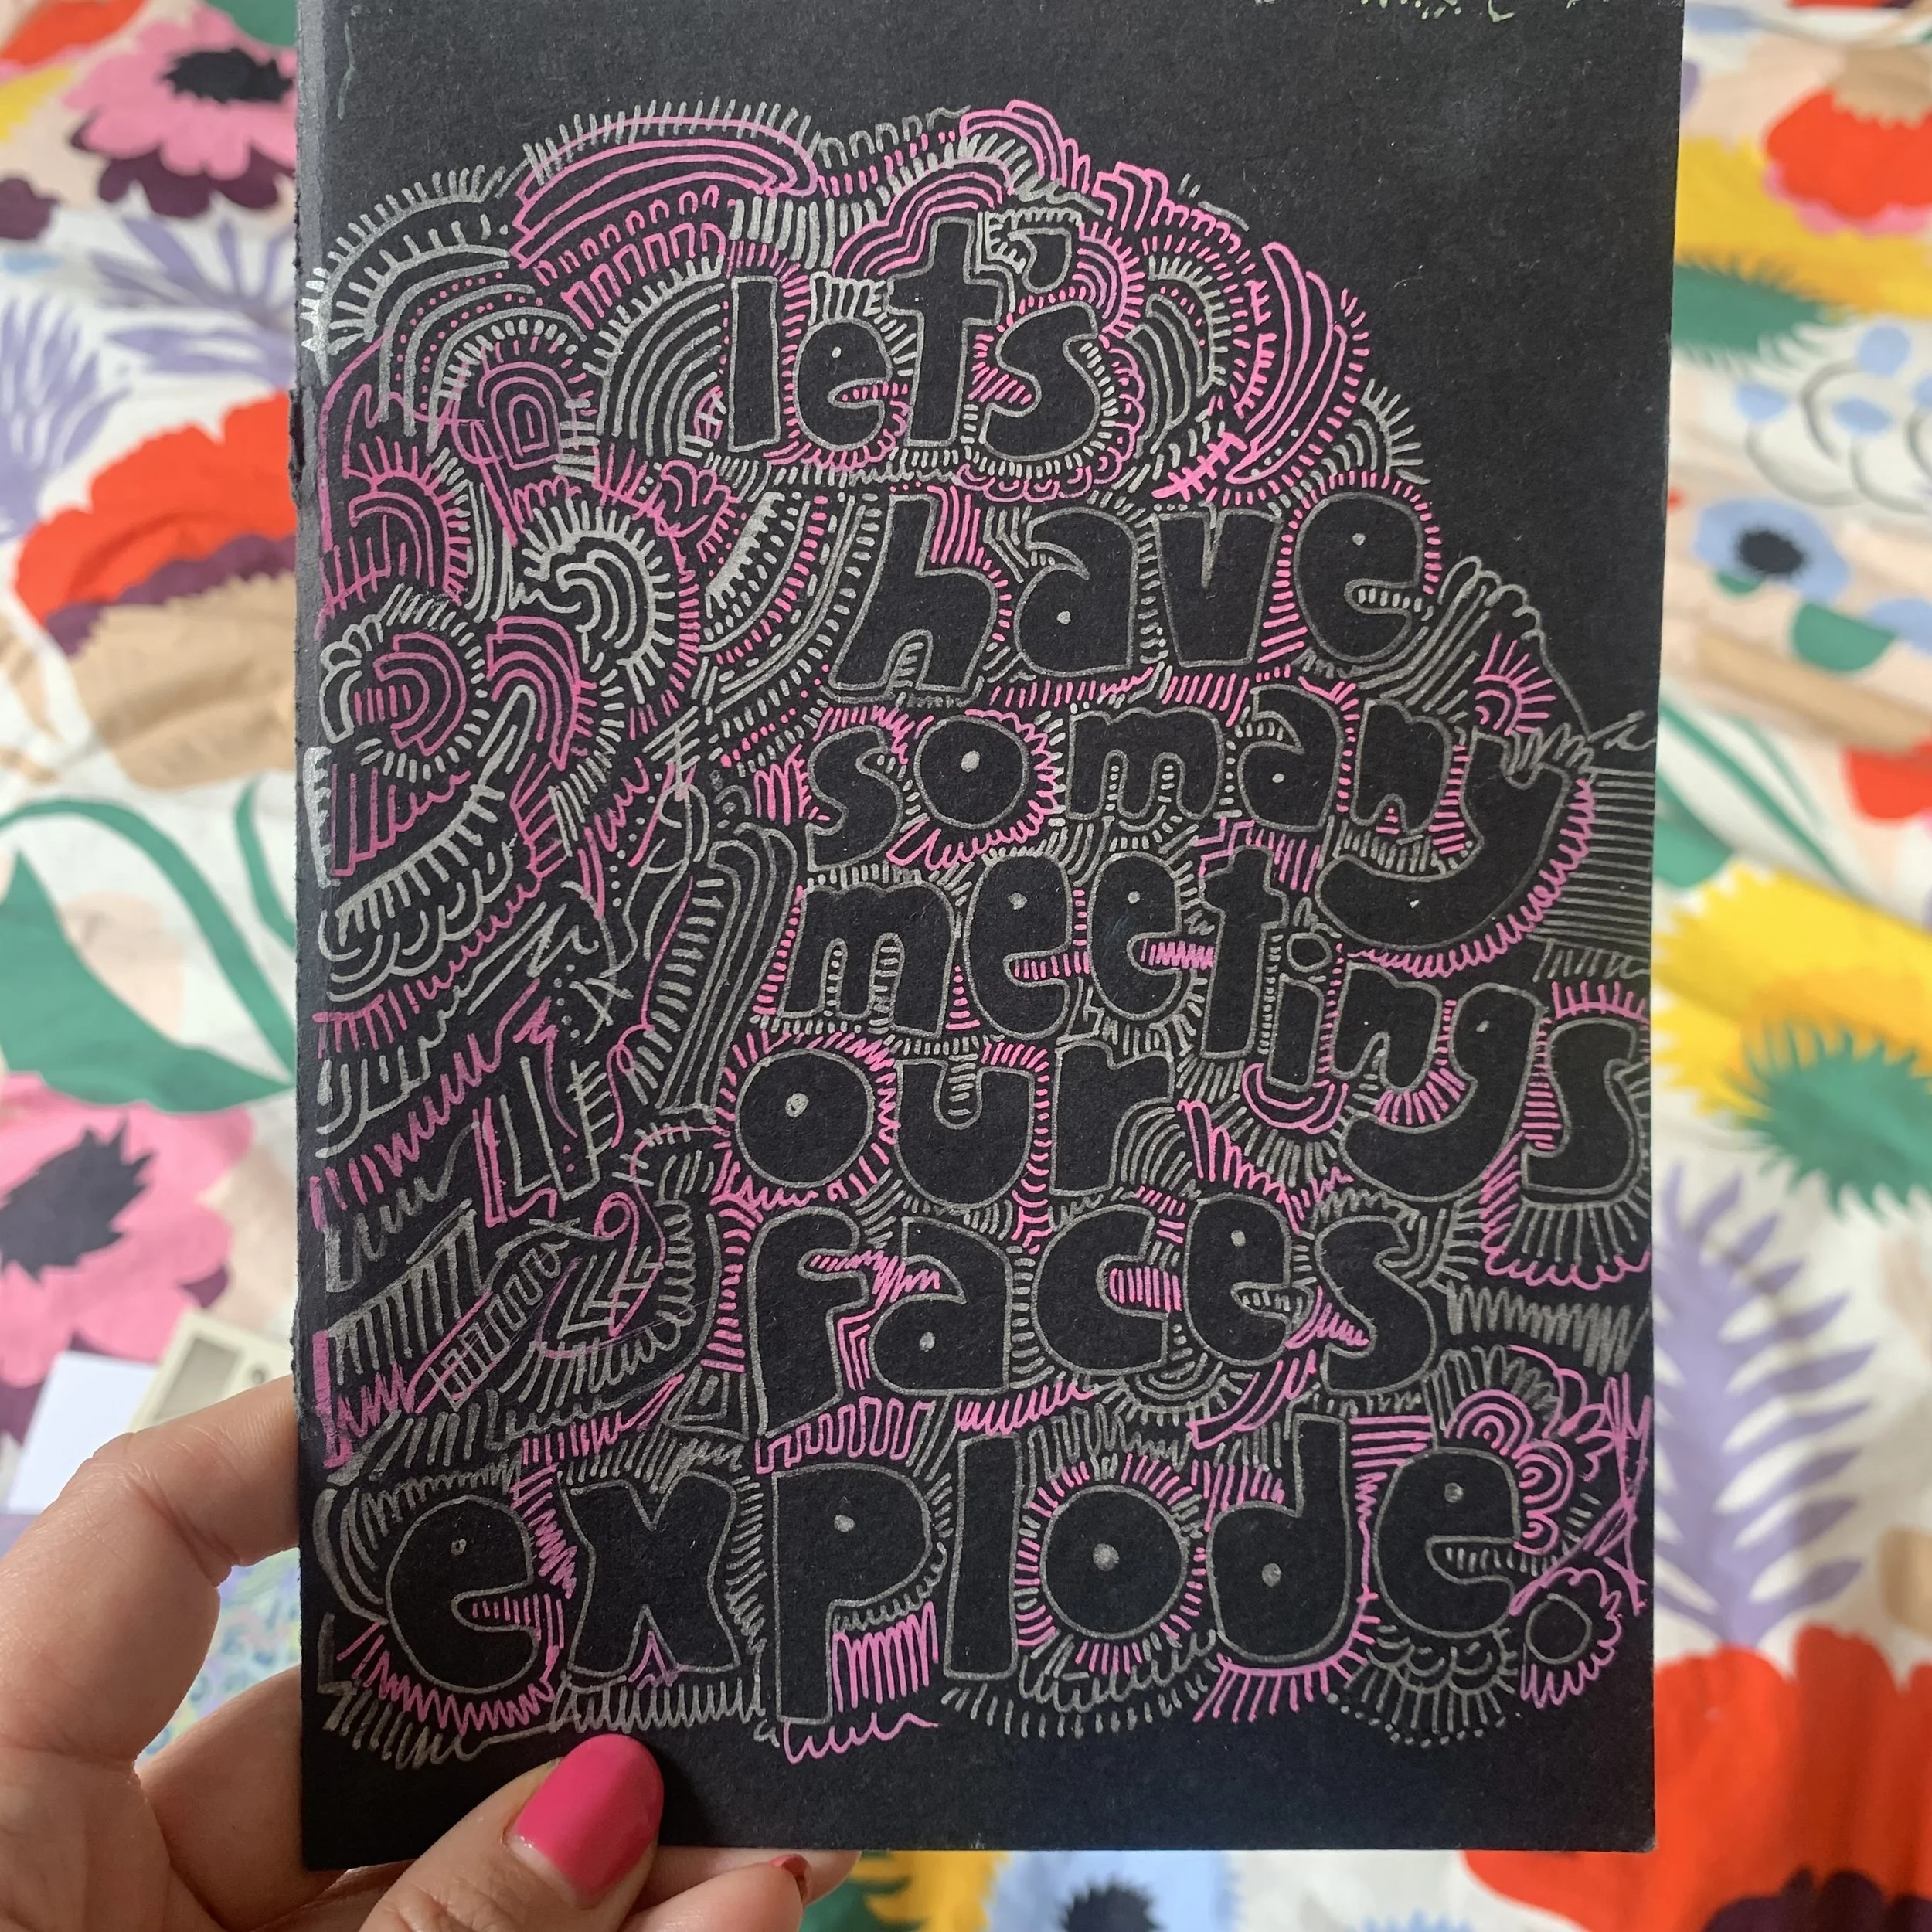 let's
have
so many
meetings
our
faces
explode